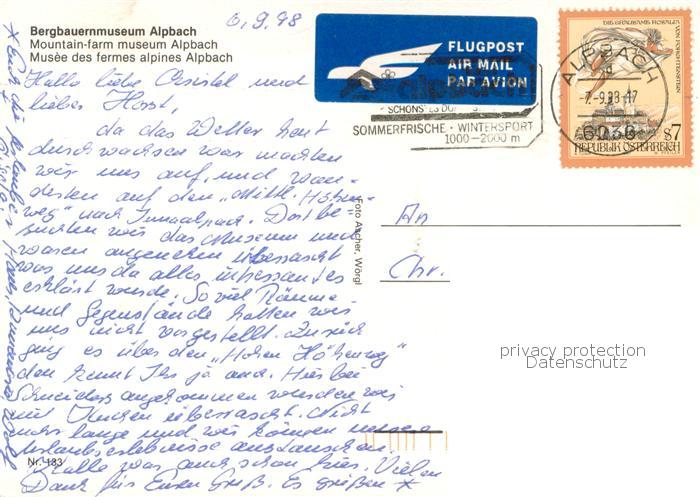 6.9.98
Bergbauernmuseum Alpbach
Mountain-farm museum Alpbach
Musèe des fermes alpines Alpbach
Hallo liebe Christel und
lieber Horst,
da das Wetter heut
durchwachsen war machten
wir uns auf, und wan-
derten auf den „Mittl. Höhen-
weg" nach Inneralpbach. Dort be-
suchten wir das Museum und
waren angenehm überrascht
was uns da alles interessantes
erklärt wurde. So viel Räume
und Gegenstände hatten wir
uns nicht vorgestellt. Zurück
ging es über den „Hohen Höhenweg"
den kennt Ihr ja auch. Hier bei
Schneiders angekommen wurden wir
mit Kuchen überrascht. Nicht
mehr lange und wir können unsere
Urlaubserlebnisse austauschen.
Kalle war auch schon hier. Vielen
Dank für Euren Gruß. Es grüßen *
* Euch die
Hans,
Nr. 133
Foto Ascher, Wörgl
FLUGPOST
AIR MAIL
PAR AVION
alpbach
SCHÖNSTES DORF
SOMMERFRISCHE · WINTERSPORT
1000-2000 m
ALPBACH
-7.-9.98-17
6036
DIE GRAUSAME ROSALIA
VON FORCHTENSTEIN
S7
REPUBLIK ÖSTERREICH
An
Chr.
privacy protection
Datenschutz